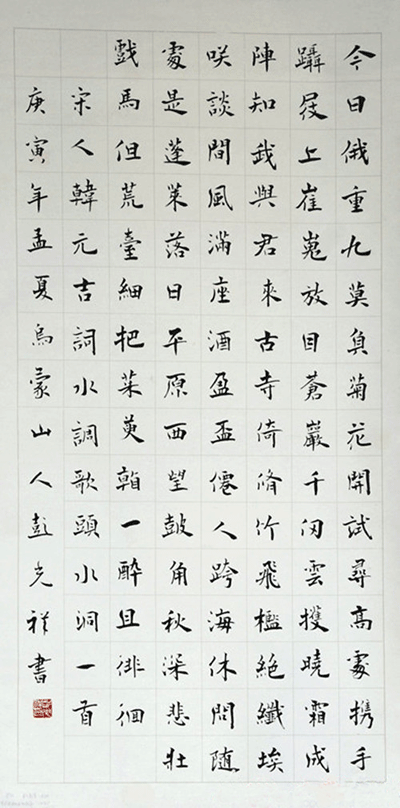 今日俄重九莫負菊花開試尋高處携手
躡屐上崔嵬放目蒼巖千仞雲擭曉霜成
陣知我與君來古寺倚脩竹飛檻絕纖埃
咲談間風滿座酒盈盃僊人跨海休問隨
處是蓬萊落日平原西望皷角秋深悲壯
戲馬但荒臺細把茱萸看一醉且徘徊
宋人韓元吉詞水調歌頭水洞一首
庚寅年孟夏烏蒙山人彭光祥書